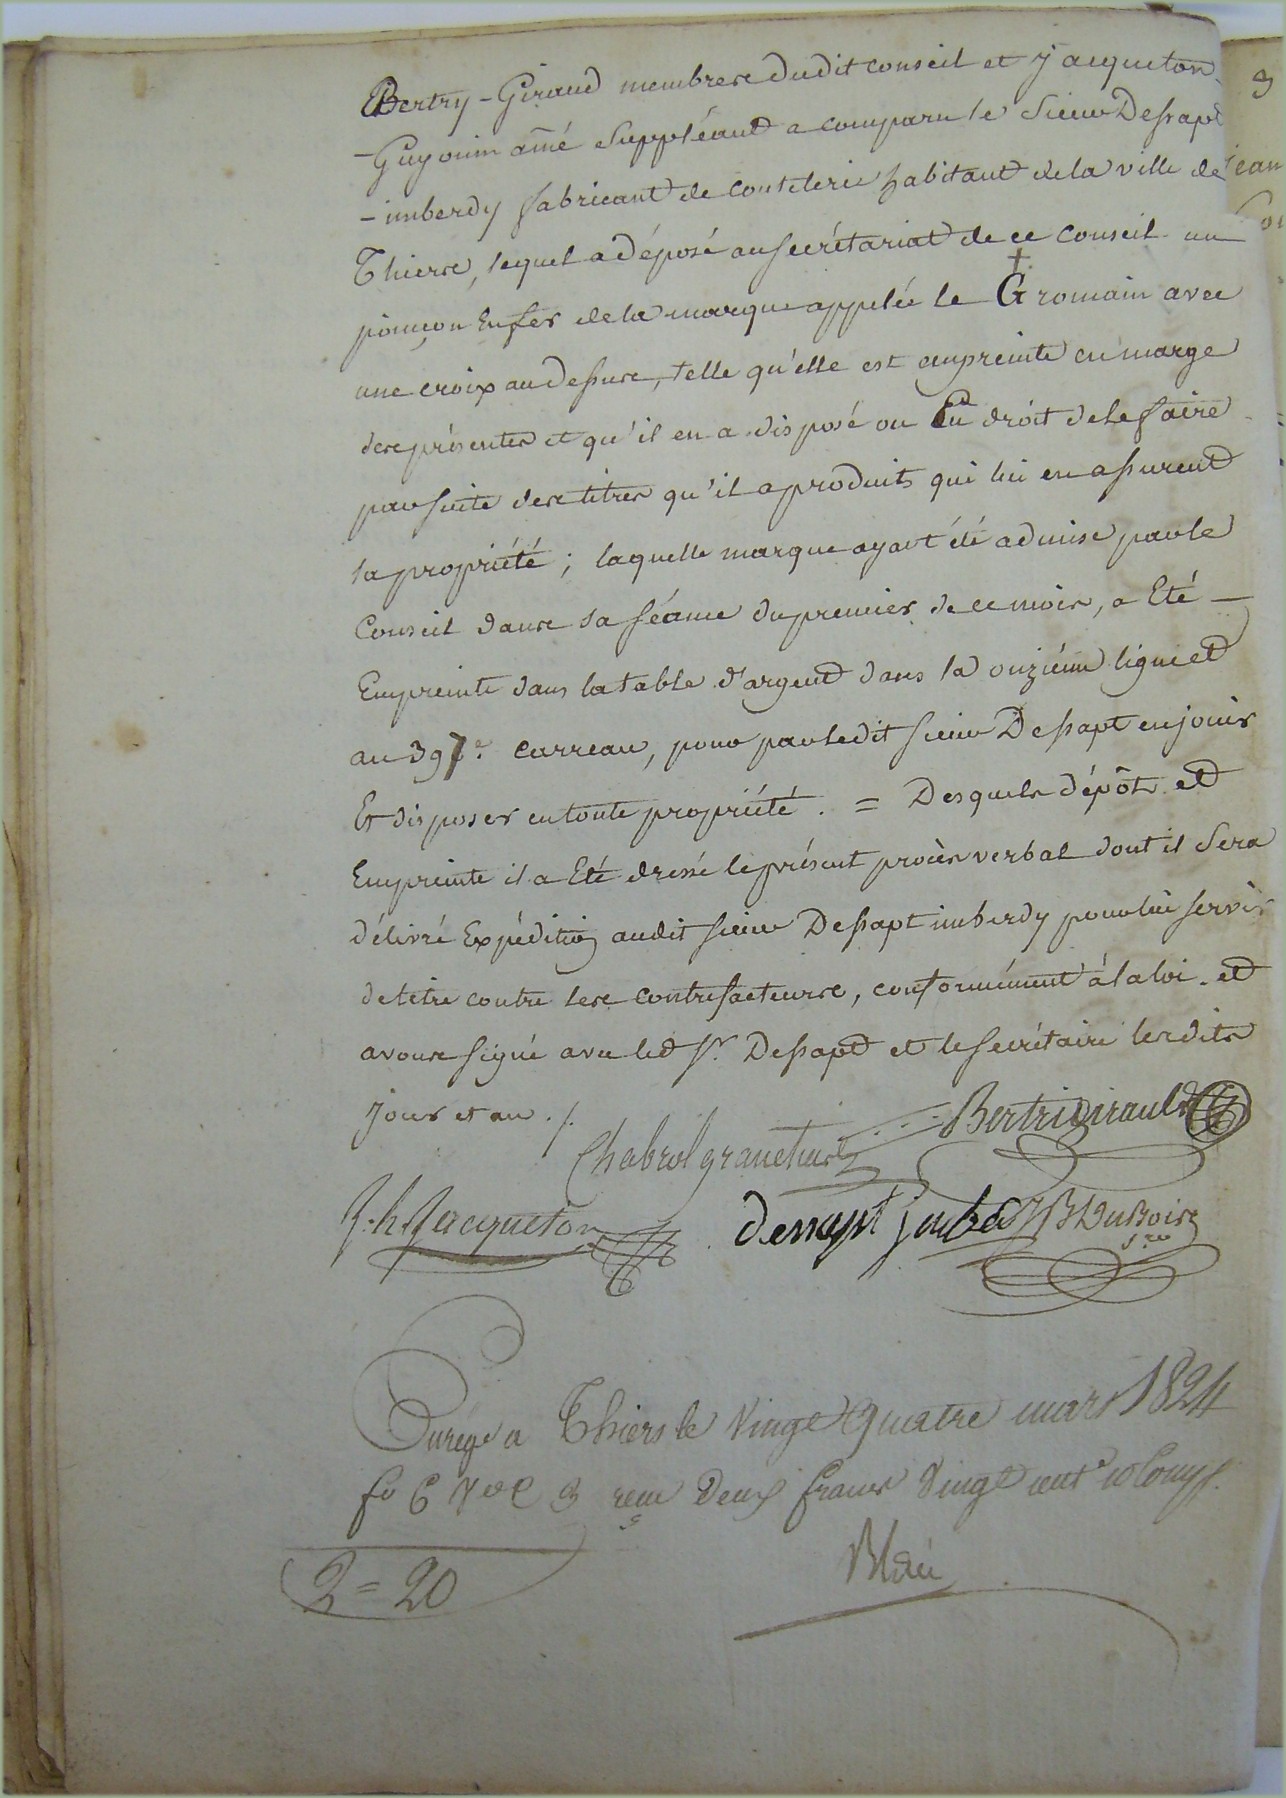 Bertry-Giraud membres dudit conseil et jacqueton
-Guyonin ainé Suppléant a comparu le Sieur Dessapt
-imberdy fabricant de coutelerie habitant de la ville de
Thiers, lequel a déposé au secrétariat de ce Conseil un
poinçon En fer de la marque appelée le G romain avec
une croix au dessus, telle qu'elle est empreinte en marge
des présentes et qu'il en a disposé ou Eu droit de le faire
par suite des titres qu'il a produits qui lui en assurent
la propriété ; laquelle marque ayant été admise par le
Conseil dans sa séance du premier de ce mois, a Eté
Empreinte dans la table d'argent dans la onzième ligne et
au 397e. carreau, pour par ledit sieur Dessapt en jouir
Et disposer en toute propriété. = Desquels dépôt et
Empreinte il a Eté dressé le présent procès verbal dont il Sera
délivré Expédition audit sieur Dessapt imberdy pour lui servir
de titre contre les contrefacteurs, conformément à la loi. et
avons signé avec led Sr. Dessapt et le secrétaire lesdits
jour et an ./.
Chabrol granetias Bertrigirauld
J.h. Jacqueton dessapt jmberdy JB DuBois
sre
Enregé a Thiers le Vingt quatre mars 1824
fo 6 Vo C 3 reçu Deux francs Vingt cent
2 = 20